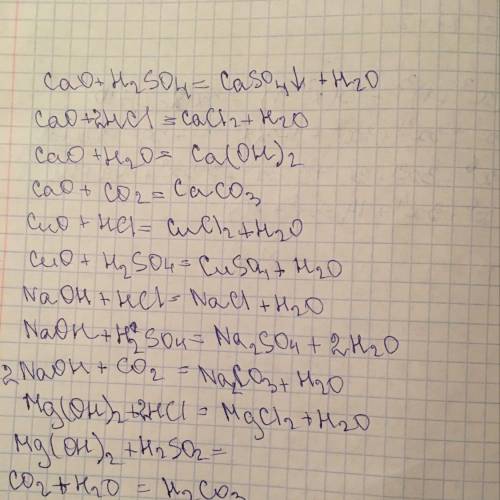 CaO + H₂SO₄ = CaSO₄↓ + H₂O
CaO + 2HCl = CaCl₂ + H₂O
CaO + H₂O = Ca(OH)₂
CaO + CO₂ = CaCO₃
CuO + HCl = CuCl₂ + H₂O
CuO + H₂SO₄ = CuSO₄ + H₂O
NaOH + HCl = NaCl + H₂O
NaOH + H₂SO₄ = Na₂SO₄ + 2H₂O
2NaOH + CO₂ = Na₂CO₃ + H₂O
Mg(OH)₂ + 2HCl = MgCl₂ + H₂O
Mg(OH)₂ + H₂SO₂ =
CO₂ + H₂O = H₂CO₃